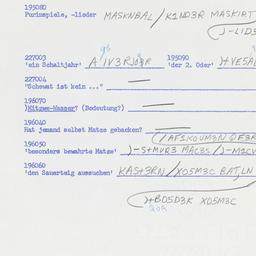 195080
Purimspiele, -lieder MASKNBAL/K1ND3R MASKIRT
227003 195090
'ein Schaltjahr' 'der 2. Oder'
227004
"Schewat ist kein ..." —
196070
)Mitzwe-Wasser? (Bedeutung?) —
196040
Hat jemand selbst Matze gebacken? —
196050
'besonders bewahrte Matze' )-S+MUR3 MAC3S
196060
'den Sauerteig aussuchen' KAS+3RN/XO5M3C BAT,LN
XO5M3C